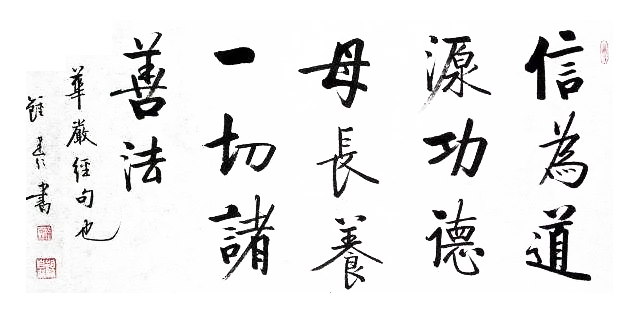 信為道
源功德
母長養
一切諸
善法
華嚴經句也
書